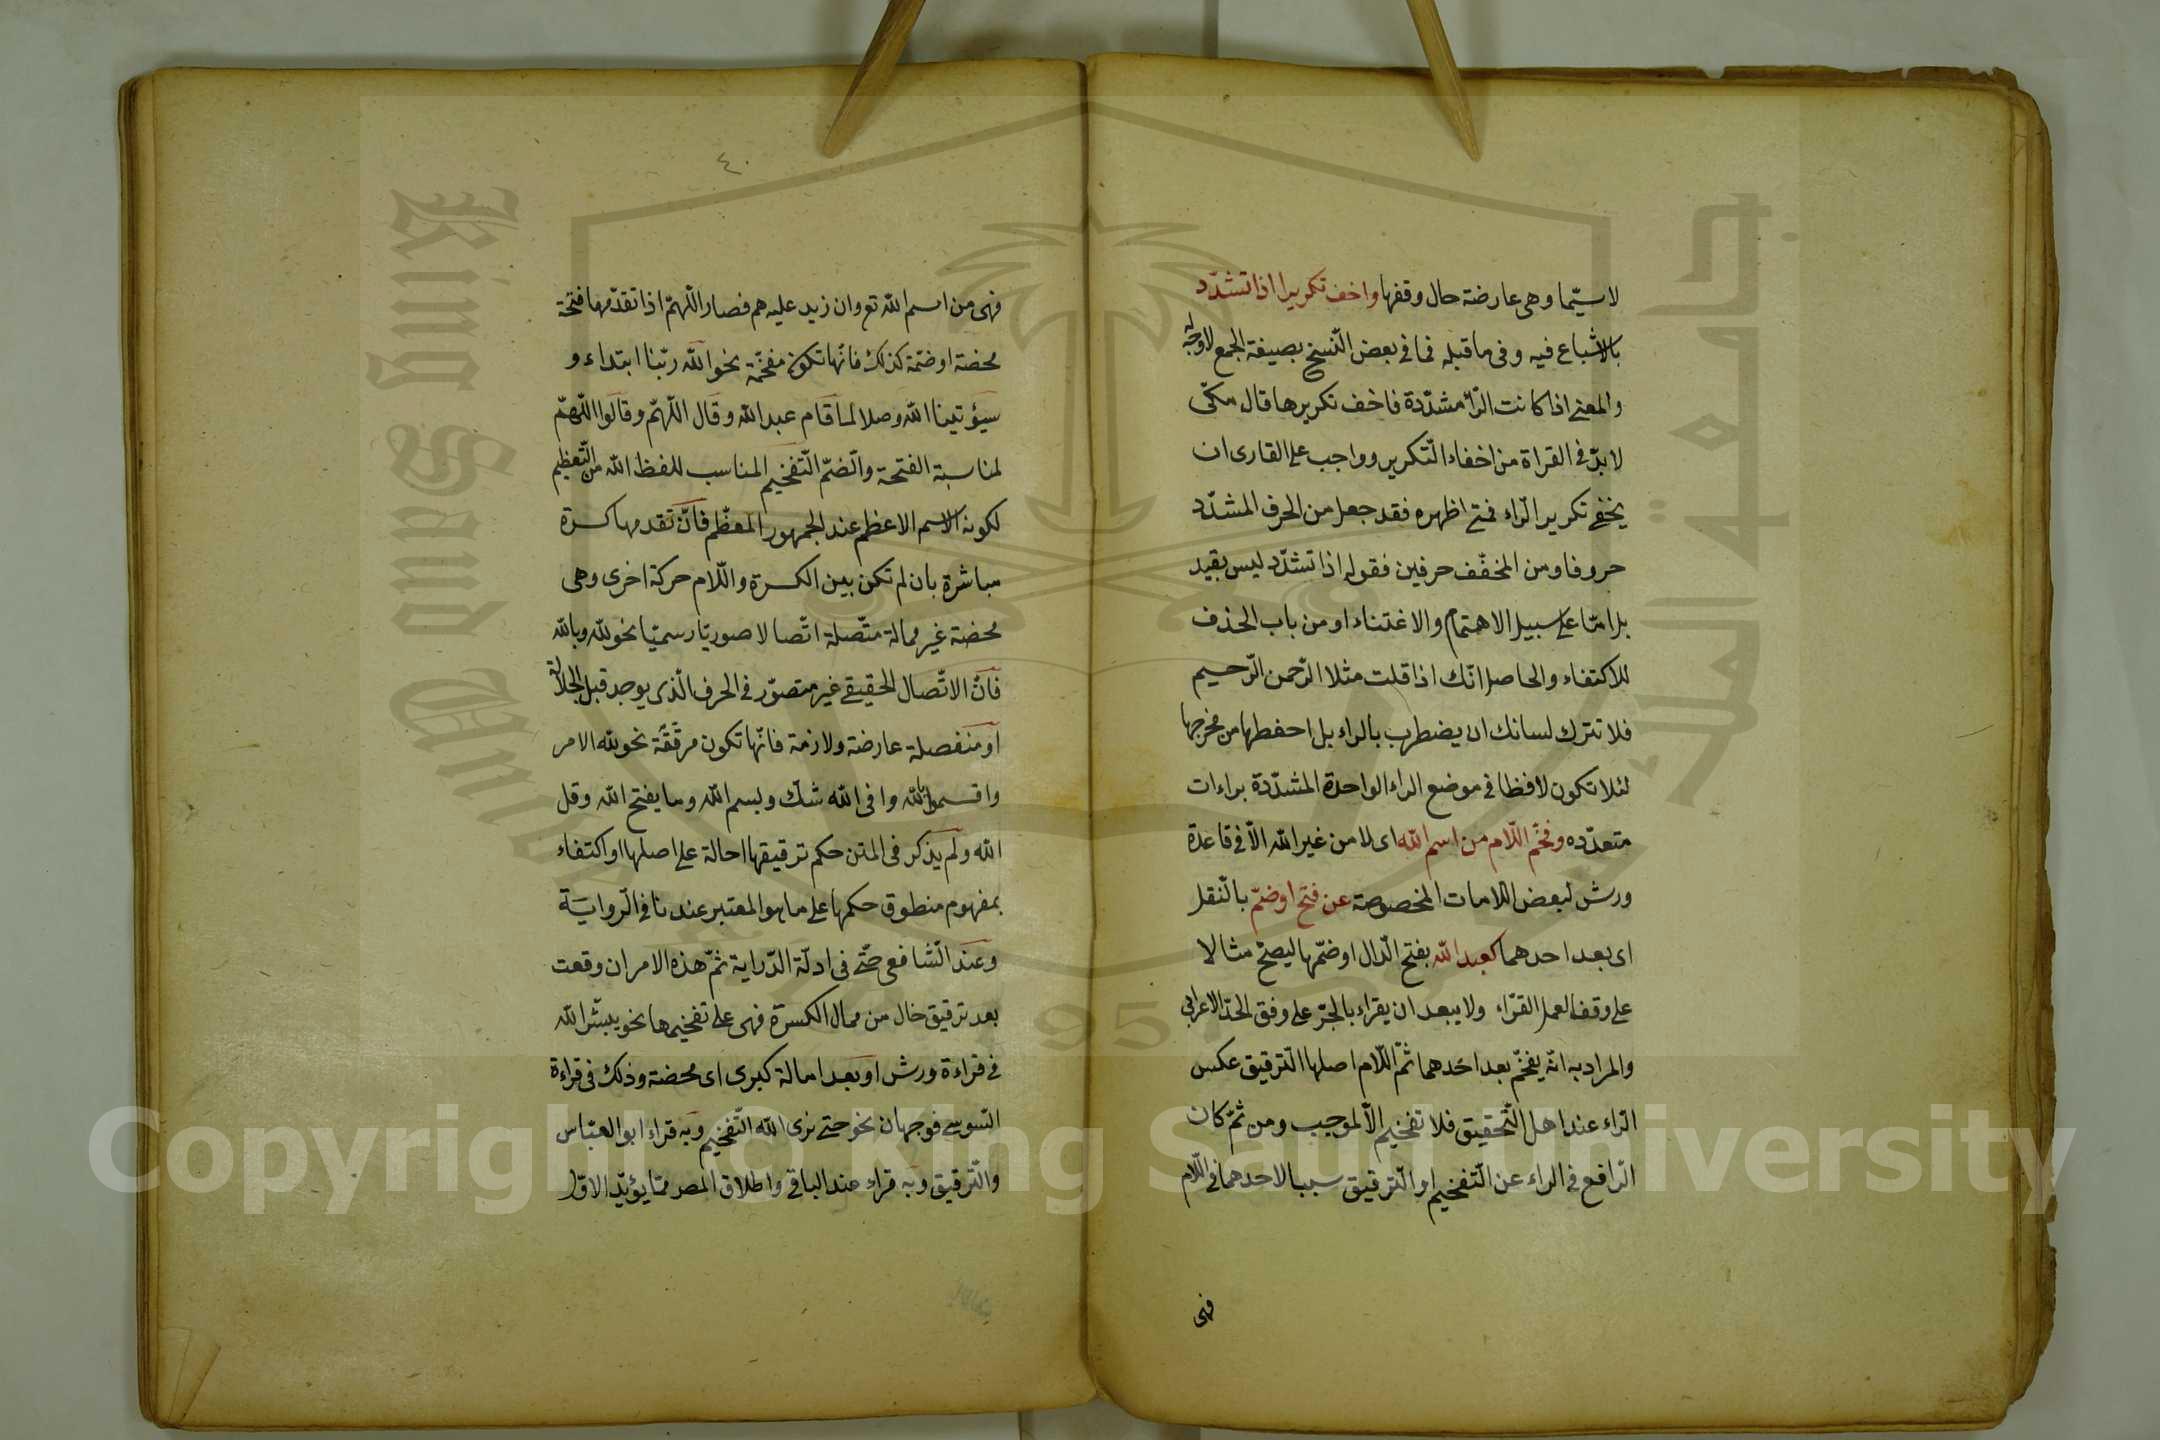 لاسيّما وهى عارضة حال وقفها واخف تكريرا اذا تشدّد
بالاشباع فيه وفى ما قبله فما فى بعض النّسخ بصيغة الجمع لا وجه له
والمعنى اذا كانت الرّاء مشدّدة فاخف تكريرها قال مكّى
لا بدّ فى القراة من اخفاء التّكرير وواجب على القارى ان
يخفى تكرير الرّاء فمتى اظهره فقد جعل من الحرف المشدّد
حروفا ومن المخفّف حرفين فقوله اذا تشدّد ليس بقيد
بل امّا على سبيل الاهتمام والاعتناء او من باب الحذف
للاكتفاء والحاصل انّك اذا قلت مثلا الرّحمن الرّحيم
فلا تترك لسانك ان يضطرب بالراء بل احفظها من مخرجها
لئلا تكون لافظا فى موضع الراء الواحدة المشدّدة براءات
متعدّده وفخّم اللّام من اسم الله اى لا من غير الله الّا فى قاعدة
ورش لبعض اللامات المخصوصة عن فتح او ضمّ بالنّقل
اى بعد احدهما كعبد الله بفتح الّدال او ضمّها ليصحّ مثالا
على وقف العمل القرّاء ولا يبعد ان يقراء بالجّر على وفق الحدّ الاعرابى
والمراد به انّه يفخّم بعد احدهما ثمّ اللّام اصلها التّرقيق عكس
الرّاء عند اهل التّحقيق فلا تفخيم الّا لموجب ومن ثمّ كان
الرّافع فى الراء عن التّفخيم او التّرقيق سببا لاحدهما فى اللّام
فهى
٤٠
فهى من اسم الله تع وان زيد عليه هم فصار اللّهمّ اذا تقدّمها فتحة
محضة او ضمّة كذلك فانّها تكون مفخّمة نحو الله ربّنا ابتداء و
سيؤتينا الله وصلا لما قام عبد الله وقال اللّهمّ وقالوا اللّهمّ
لمناسبة الفتحة والضمّ التّفخيم المناسب للفظ الله من التّعظيم
لكونه الاسم الاعظم عند الجمهور المعظّم فانّ تقدمها كسرة
مباشرة بان لم تكن بين الكسرة واللّام حركة اخرى وهى
محضة غير ممالة متّصلة اتّصالا صوريّا رسميّا نحو لله وبالله
فانّ الاتّصال الحقيقى غير متصوّر فى الحرف الّذى يوجد قبل الجلالة
او منفصلة عارضة ولازمة فانّها تكون مرقّقة نحو لله الامر
واقسموا بالله وافى الله شكّ وبسم الله وما يفتح الله وقل
الله ولم يذكر فى المتن حكم ترقيقها احالة على اصلها او اكتفاء
بمفهوم منطوق حكمها على ما هو المعتبر عندنا فى الرّواية
وعند الشّافعى حتّى فى ادلّة الدّراية ثمّ هذه الامر ان وقعت
بعد ترقيق خال من ممال الكسرة فهى على تفخيمها نحو يبشّر الله
فى قراءة ورش او بعد امالة كبرى اى محضة وذلك فى قراءة
السّوسى فوجهان نحو حتى نرى الله التّفخيم وبه قراء ابو العبّاس
والتّرقيق وبه قراء عند الباقى واطلاق المصر ممّا يؤيّد الاوّل
King Saud University
جامعة الملك
95
Copyright © King Saud University